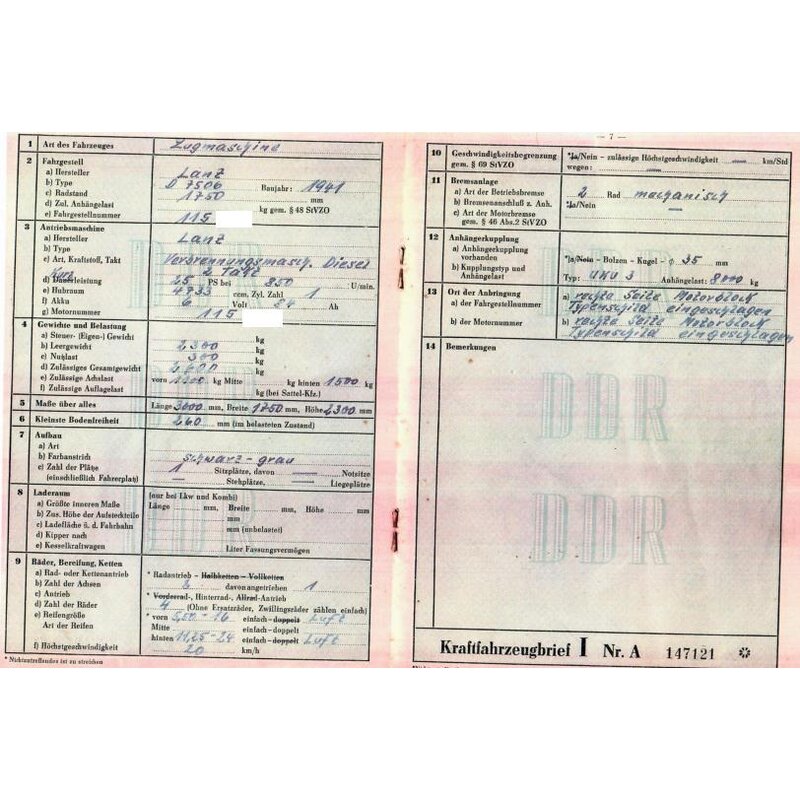 1 Art des Fahrzeuges Zugmaschine
2 Fahrgestell
a) Hersteller Lanz
b) Type D 7506 Baujahr: 1941
c) Radstand 1750 mm
d) Zul. Anhängelast kg gem. § 48 StVZO
e) Fahrgestellnummer 115
3 Antriebsmaschine
a) Hersteller Lanz
b) Type
c) Art, Kraftstoff, Takt Verbrennungsmasch. Diesel
2 Takt
d) Dauerleistung Kurz 25 PS bei 850 U/min.
e) Hubraum 4733 ccm, Zyl. Zahl 1
f) Akku 6 Volt Ah
g) Motornummer 115
4 Gewichte und Belastung
a) Steuer- (Eigen-) Gewicht kg
b) Leergewicht 2300 kg
c) Nutzlast 300 kg
d) Zulässiges Gesamtgewicht 2600 kg
e) Zulässige Achslast vorn 1100 kg Mitte kg hinten 1500 kg
f) Zulässige Auflagelast kg (bei Sattel-Kfz.)
5 Maße über alles Länge 3000 mm, Breite 1750 mm, Höhe 2300 mm
6 Kleinste Bodenfreiheit 260 mm (im belasteten Zustand)
7 Aufbau
a) Art
b) Farbanstrich schwarz - grau
c) Zahl der Plätze 1 Sitzplätze, davon — Notsitze
(einschließlich Fahrerplatz) — Stehplätze, — Liegeplätze
8 Laderaum (nur bei Lkw und Kombi)
a) Größte inneren Maße Länge mm, Breite mm, Höhe mm
b) Zus. Höhe der Aufsteckteile mm
c) Ladefläche ü. d. Fahrbahn mm (unbelastet)
d) Kipper nach
e) Kesselkraftwagen Liter Fassungsvermögen
9 Räder, Bereifung, Ketten
a) Rad- oder Kettenantrieb * Radantrieb - Halbketten - Vollketten
b) Zahl der Achsen 2 davon angetrieben 1
c) Antrieb * Vorderrad-, Hinterrad-, Allrad-Antrieb
d) Zahl der Räder 4 (Ohne Ersatzräder, Zwillingsräder zählen einfach)
e) Reifengröße * vorn 5,50 - 16 einfach - doppelt Luft
Art der Reifen Mitte einfach - doppelt
hinten 11,25 - 24 einfach - doppelt Luft
f) Höchstgeschwindigkeit 20 km/h
* Nichtzutreffendes ist zu streichen
— 7 —
10 Geschwindigkeitsbegrenzung *Ja/Nein - zulässige Höchstgeschwindigkeit — km/Std
gem. § 69 StVZO wegen: —
11 Bremsanlage
a) Art der Betriebsbremse 2 Rad mechanisch
b) Bremsenanschluß z. Anh. *Ja/Nein —
c) Art der Motorbremse
gem. § 46 Abs.2 StVZO
12 Anhängerkupplung
a) Anhängerkupplung
vorhanden *Ja/Nein - Bolzen - Kugel - φ 35 mm
b) Kupplungstyp und
Anhängelast Typ: UKU 3 Anhängelast: 8000 kg
13 Ort der Anbringung
a) der Fahrgestellnummer a) rechte Seite Motorblock
Typenschild eingeschlagen
b) der Motornummer b) rechte Seite Motorblock
Typenschild eingeschlagen
14 Bemerkungen
DDR
DDR
Kraftfahrzeugbrief I Nr. A 147121